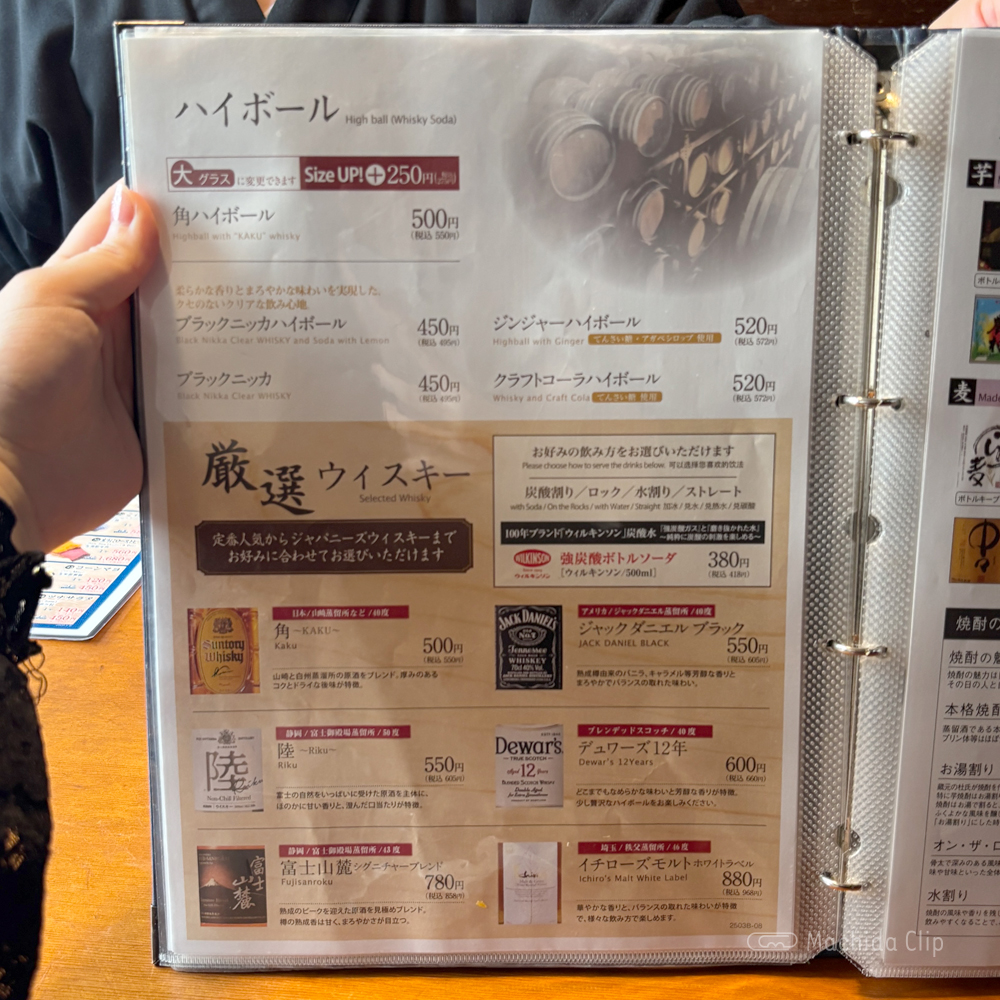 ハイボール High ball (Whisky Soda)
大 グラス に変更できます Size UP! + 250円
角ハイボール 500円
Highball with "KAKU" whisky (税込 550円)
柔らかな香りとまろやかな味わいを実現した、
クセのないクリアな飲み心地
ブラックニッカハイボール 450円
Black Nikka Clear WHISKY and Soda with Lemon (税込 495円)
ブラックニッカ 450円
Black Nikka Clear WHISKY (税込 495円)
ジンジャーハイボール 520円
Highball with Ginger てんさい糖・アガベシロップ 使用 (税込 572円)
クラフトコーラハイボール 520円
Whisky and Craft Cola てんさい糖 使用 (税込 572円)
厳選ウィスキー
Selected Whisky
定番人気からジャパニーズウィスキーまで
お好みに合わせてお選びいただけます
お好みの飲み方をお選びいただけます
Please choose how to serve the drinks below. 可以选择您喜欢的饮法
炭酸割り／ロック／水割り／ストレート
with Soda / On the Rocks / with Water / Straight 加冰／兑水／兑热水／兑碳酸
100年ブランド「ウィルキンソン」炭酸水 「強炭酸ガス」と「磨き抜かれた水」
～純粋に炭酸の刺激を楽しめる～
WILKINSON
ウィルキンソン
強炭酸ボトルソーダ 380円
[ウィルキンソン/500ml] (税込 418円)
Suntory
Whisky
日本/山崎蒸留所など/40度
角 ～KAKU～
Kaku 500円
(税込 550円)
山崎と白州蒸溜所の原酒をブレンド。厚みのある
コクとドライな後味が特徴。
JACK DANIEL'S
Tennessee
WHISKEY
アメリカ/ジャックダニエル蒸留所/40度
ジャック ダニエル ブラック
JACK DANIEL BLACK 550円
(税込 605円)
熟成樽由来のバニラ、キャラメル等芳醇な香りと
まろやかでバランスの取れた味わい。
陸
Riku
静岡/富士御殿場蒸留所/50度
陸 ～Riku～
Riku 550円
(税込 605円)
富士の自然をいっぱいに受けた原酒を主体に、
ほのかに甘い香りと、澄んだ口当たりが特徴。
Dewar's
TRUE SCOTCH
Aged 12 Years
ブレンデッドスコッチ/40度
デュワーズ 12年
Dewar's 12Years 600円
(税込 660円)
どこまでもなめらかな味わいと芳醇な香りが特徴。
少し贅沢なハイボールをお楽しみください。
富士山麓
静岡/富士御殿場蒸留所/43度
富士山麓 シグニチャーブレンド
Fujisanroku 780円
(税込 858円)
熟成のピークを迎えた原酒を見極めブレンド。
樽の熟成香は甘く、まろやかさが目立つ。
埼玉/秩父蒸留所/46度
イチローズモルト ホワイトラベル
Ichiro's Malt White Label 880円
(税込 968円)
華やかな香りと、バランスの取れた味わいが特徴
で、様々な飲み方で楽しめます。
2503B-08
芋
麦 Made
焼酎の
焼酎の魅
焼酎の魅力は
その日の人と
本格焼酎
お湯割り
オン・ザ・ロ
水割り
Machida Clip